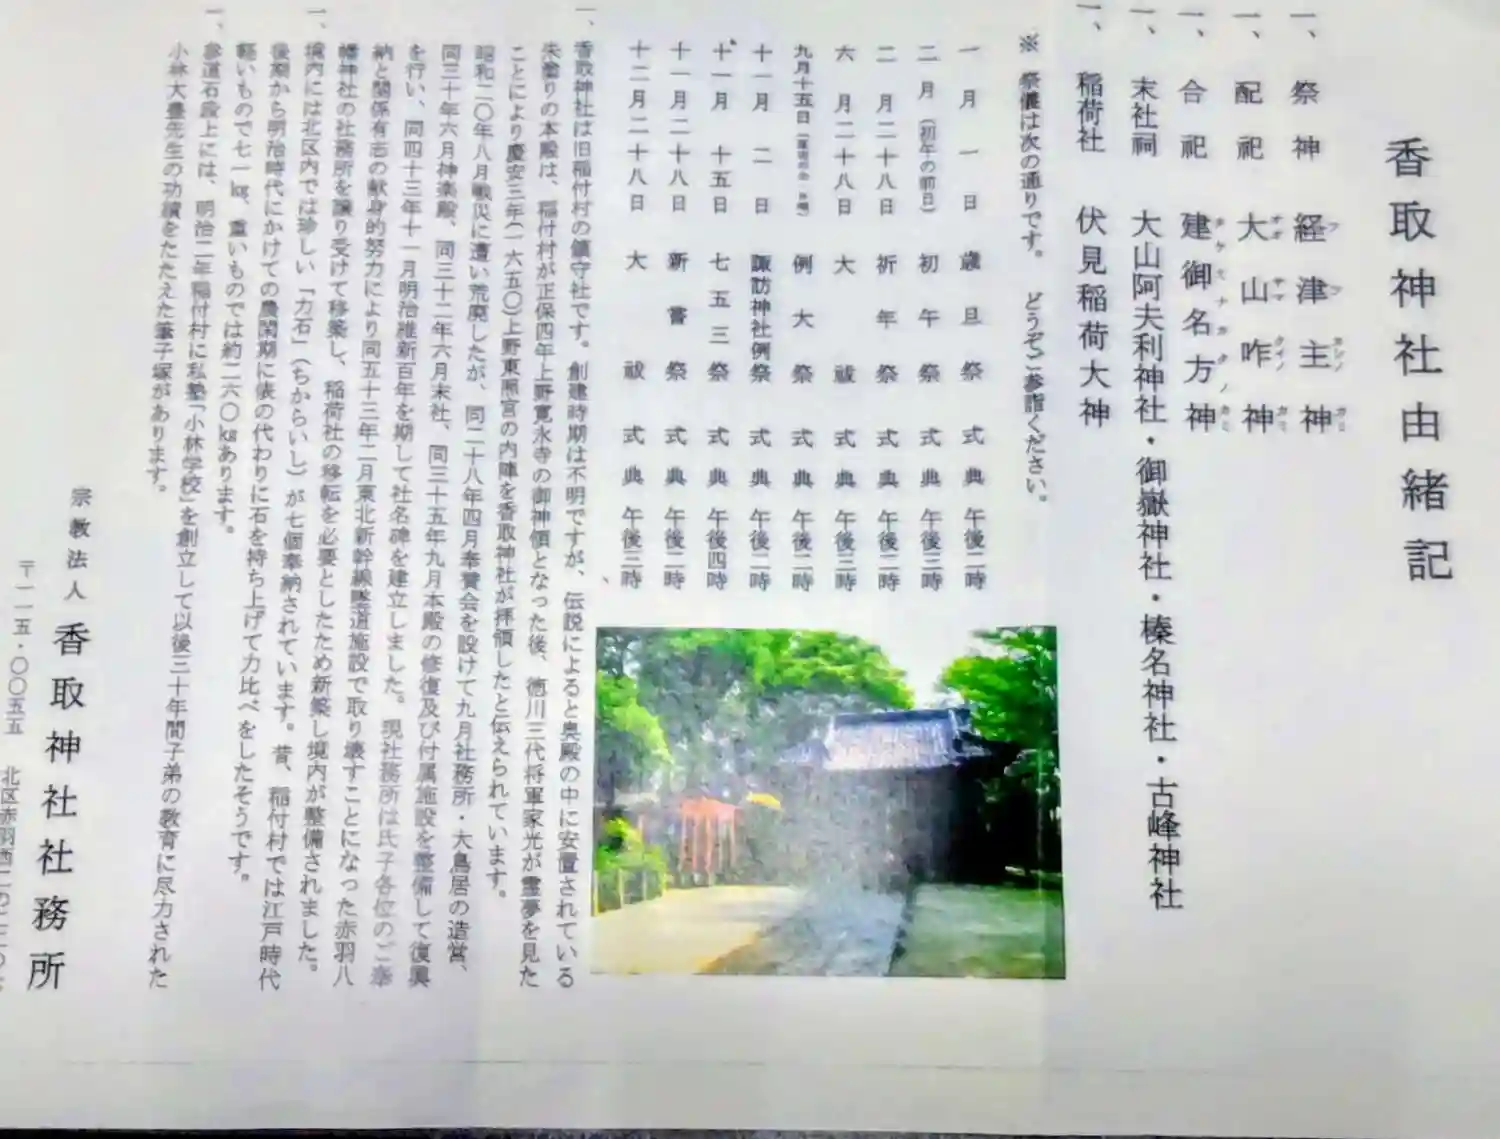 香取神社由緒記
一、祭神 経津主神
フツヌシノカミ
一、配祀 大山咋神
オオヤマクイノカミ
一、合祀 建御名方神
タケミナカタノカミ
一、末社祠 大山阿夫利神社・御嶽神社・榛名神社・古峰神社
一、稲荷社 伏見稲荷大神
※ 祭儀は次の通りです。 どうぞご参詣ください。
一月一日 歳旦祭 式典 午後二時
二月（初午の前日） 初午祭 式典 午後三時
二月二十八日 祈年祭 式典 午後二時
六月二十八日 大祓 式典 午後三時
九月十五日 例大祭 式典 午後二時
十一月二日 諏訪神社例祭 式典 午後二時
十一月十五日 七五三祭 式典 午後四時
十一月二十八日 新嘗祭 式典 午後二時
十二月二十八日 大祓 式典 午後三時
一、香取神社は旧稲付村の鎮守社です。創建時期は不明ですが、伝説によると奥殿の中に安置されている
朱塗りの本殿は、稲付村が正保四年上野寛永寺の御神領となった後、徳川三代将軍家光が霊夢を見た
ことにより慶安三年（一六五〇）上野東照宮の内陣を香取神社が拝領したと伝えられています。
昭和二〇年八月戦災に遭い荒廃したが、同二十八年四月奉賛会を設けて九月社務所・大鳥居の造営、
同三十年六月神楽殿、同三十二年六月末社、同三十五年九月本殿の修復及び付属施設を整備して復興
を行い、同四十三年十一月明治維新百年を期して社名碑を建立しました。現社務所は氏子各位のご奉
納と関係有志の献身的努力により同五十三年二月東北新幹線隧道施設で取り壊すことになった赤羽八
幡神社の社務所を譲り受けて移築し、稲荷社の移転を必要としたため新築し境内が整備されました。
一、境内には北区内では珍しい「力石」（ちからいし）が七個奉納されています。昔、稲付村では江戸時代
後期から明治時代にかけての農閑期に俵の代わりに石を持ち上げて力比べをしたそうです。
軽いもので七一㎏、重いものでは約二六〇㎏あります。
一、参道石段上には、明治二年稲付村に私塾「小林学校」を創立して以後三十年間子弟の教育に尽力された
小林大豊先生の功績をたたえた筆子塚があります。
宗教法人 香取神社社務所
〒一一五・〇〇五五 北区赤羽西二の二二の